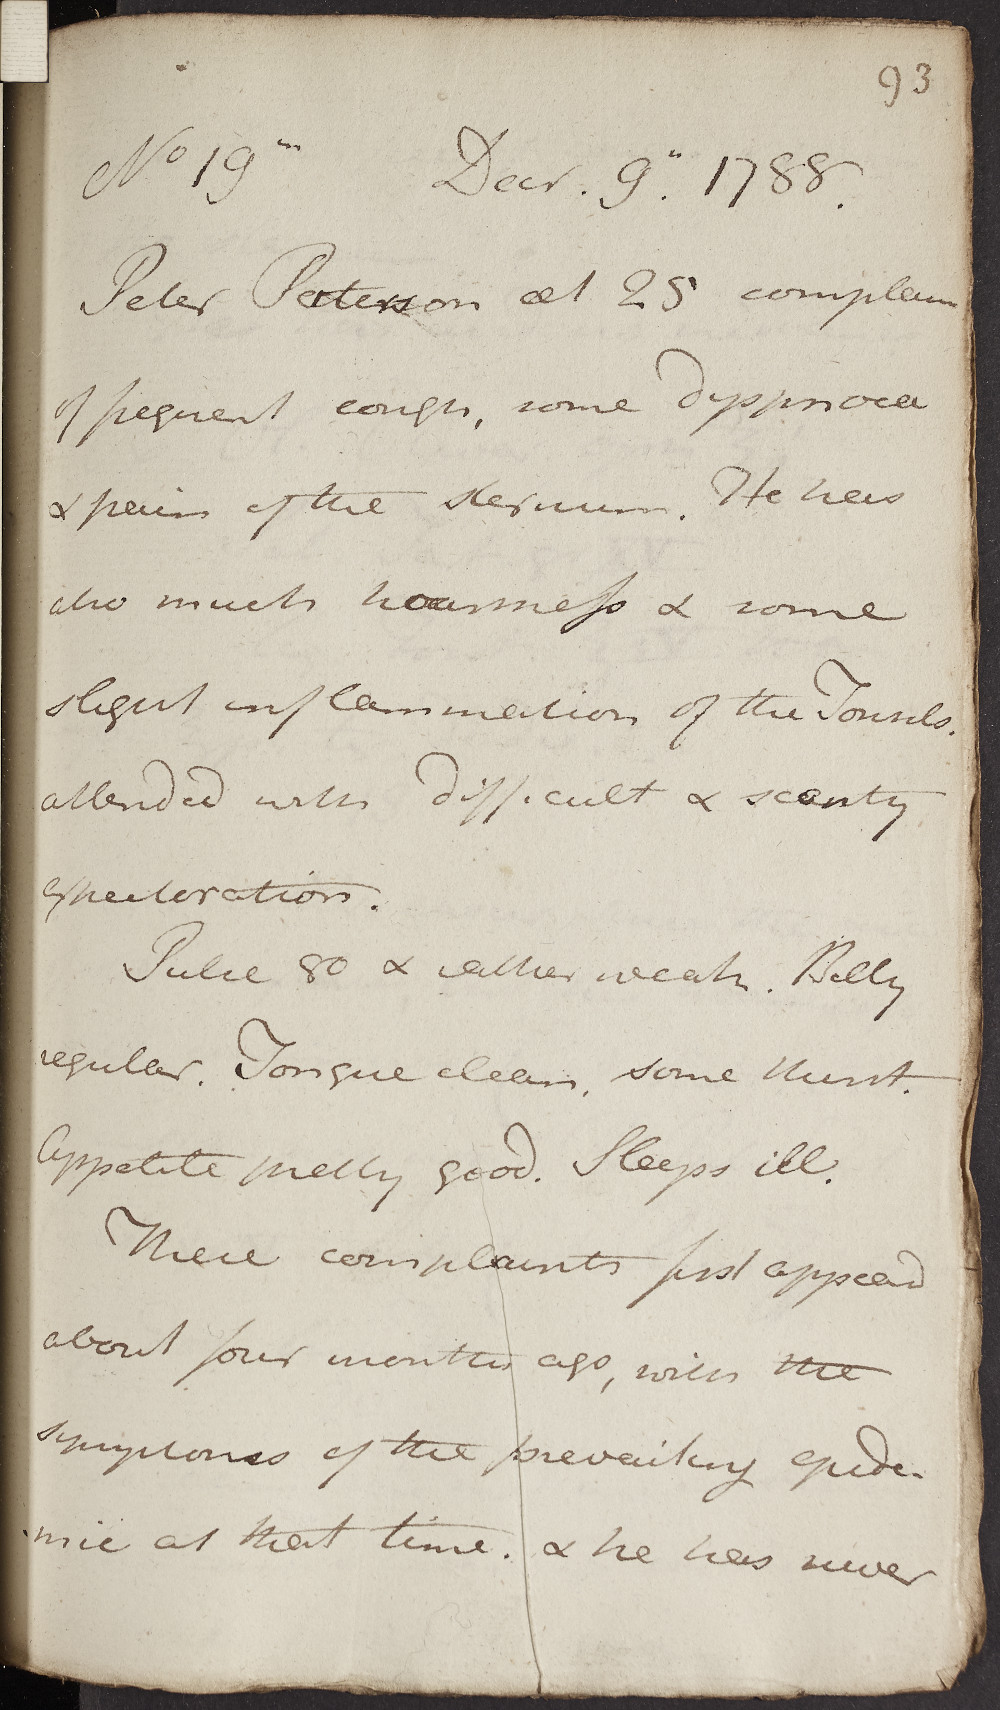 93
No 19th Decr. 9th. 1788.
Peter Paterson æt 25 complains
of frequent cough, some dyspnoea
& pain of the sternum. He has
also much hoarsness & some
slight inflammation of the Tonsils.
attended with difficult & scanty
expectoration.
Pulse 80 & rather weak. Belly
regular. Tongue clean, some thirst.
Appetite pretty good. Sleeps ill.
These complaints first appeard
about four months ago, with the
symptoms of the prevailing epide-
mic at that time. & he has never